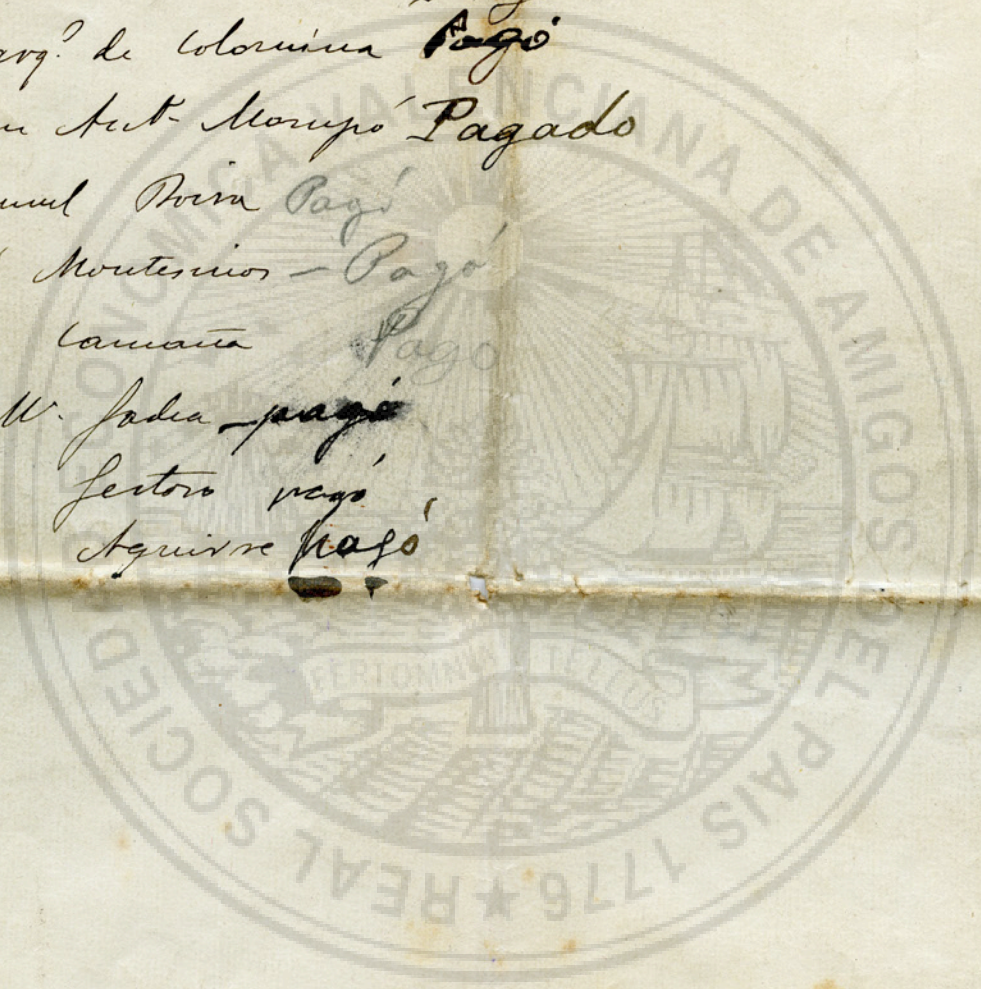 arq.º de Colomina Pagó
Ant.º Pagado
Roira Pagó
Montesinos – Pagó
Camaña Pagó
Jadea – pagó
Sertoro pagó
Aguirre Pagó
REAL SOCIEDAD ECONOMICA VALENCIANA DE AMIGOS DEL PAIS 1776 ★
FERT OMNIA TELLUS